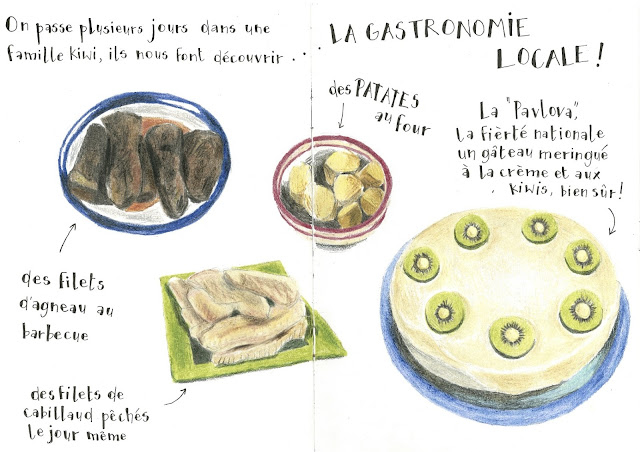 On passe plusieurs jours dans une
famille kiwi, ils nous font découvrir . . .
. LA GASTRONOMIE
LOCALE !
des PATATES
au four
La "Pavlova",
la fièrté nationale
un gâteau meringué
à la crème et aux
kiwis, bien sûr !
des filets
d'agneau au
barbecue
des filets de
cabillaud pêchés
le jour même